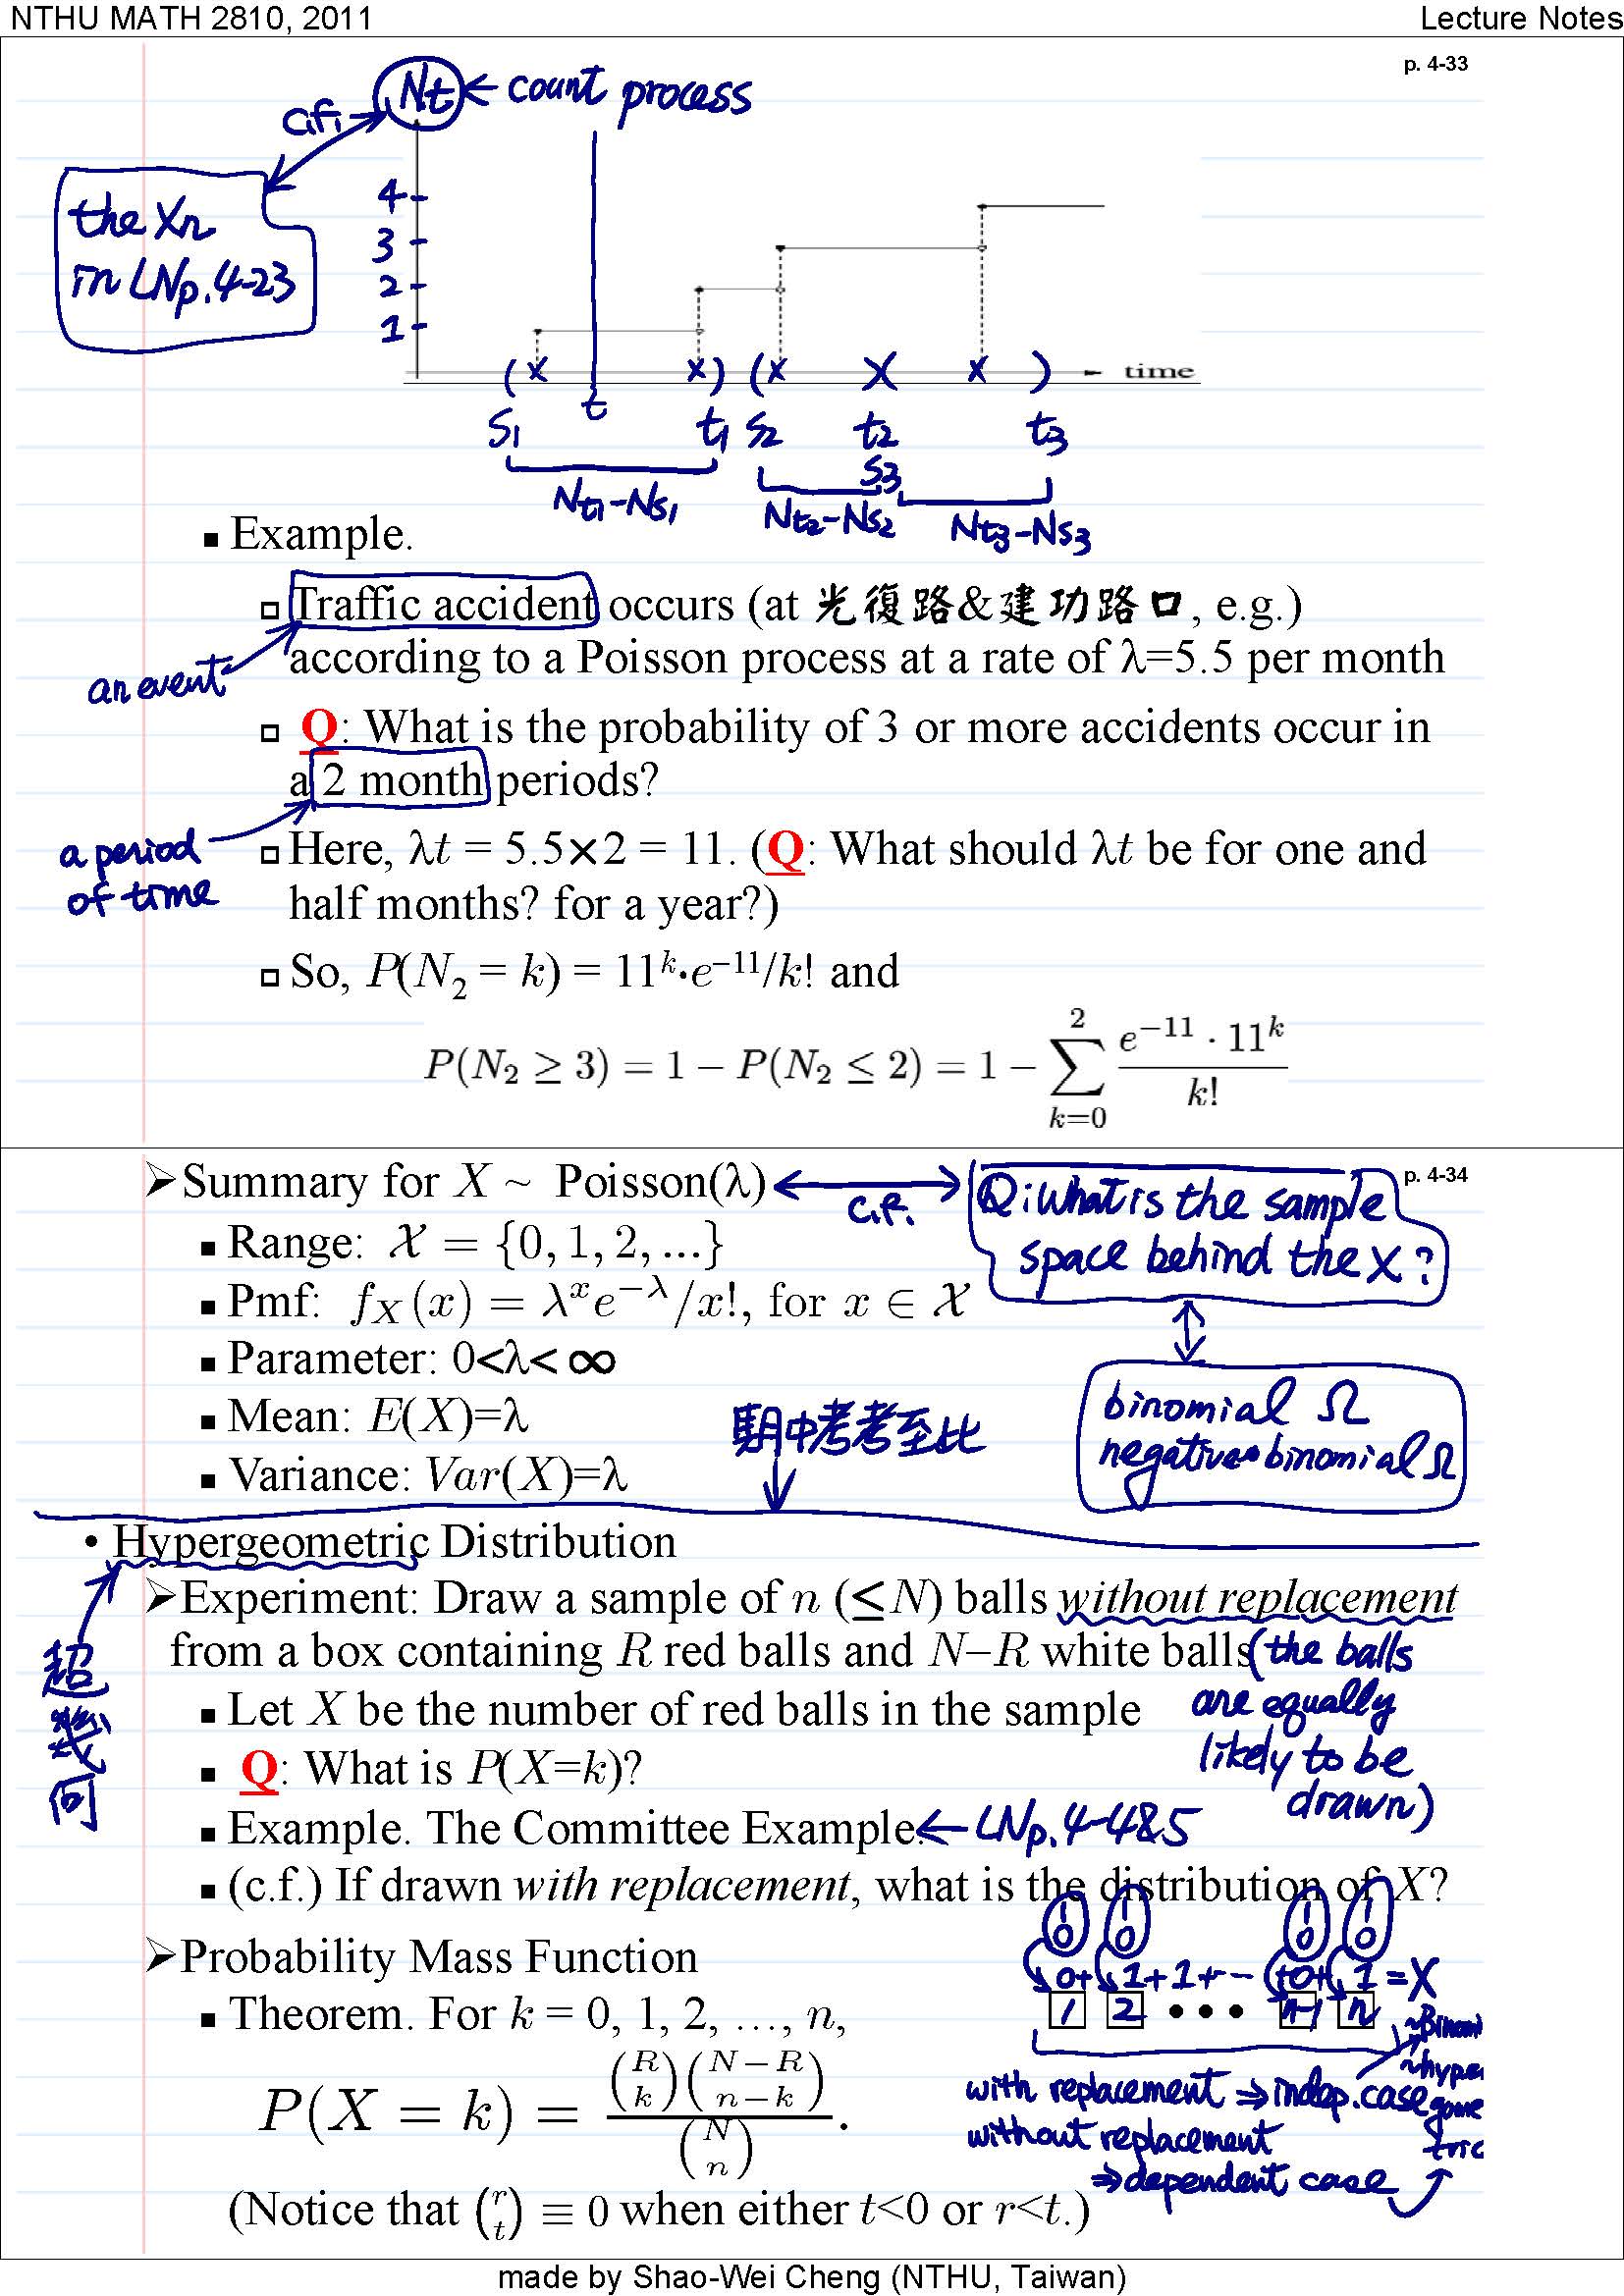 NTHU MATH 2810, 2011
Lecture Notes
p. 4-33
Nt ← count process
c.f.
the Xn
in LNp.4-23
4
3
2
1
time
( x t x) (x X x )
S1 t1 S2 t2 t3
S3
Nt1-Ns1 Nt2-Ns2 Nt3-Ns3
▪ Example.
□ Traffic accident occurs (at 光復路&建功路口, e.g.)
according to a Poisson process at a rate of λ=5.5 per month
an event
□ Q: What is the probability of 3 or more accidents occur in
a 2 month periods?
a period
of time
□ Here, λt = 5.5×2 = 11. (Q: What should λt be for one and
half months? for a year?)
□ So, P(N₂ = k) = 11ᵏ·e⁻¹¹/k! and
P(N₂ ≥ 3) = 1 − P(N₂ ≤ 2) = 1 − ∑_{k=0}^{2} e⁻¹¹ · 11ᵏ / k!
p. 4-34
➢Summary for X ~ Poisson(λ)
c.f.
Q: What is the sample
space behind the X?
▪ Range: 𝒳 = {0, 1, 2, ...}
▪ Pmf: f_X(x) = λˣe^{−λ}/x!, for x ∈ 𝒳
▪ Parameter: 0<λ<∞
▪ Mean: E(X)=λ
▪ Variance: Var(X)=λ
binomial Ω
negative binomial Ω
期中考考至此
• Hypergeometric Distribution
超幾何
➢Experiment: Draw a sample of n (≤N) balls without replacement
from a box containing R red balls and N−R white balls (the balls
are equally
likely to be
drawn)
▪ Let X be the number of red balls in the sample
▪ Q: What is P(X=k)?
▪ Example. The Committee Example. ← LNp.4-4&5
▪ (c.f.) If drawn with replacement, what is the distribution of X?
1 1 1 1
0 0 0 0
0+ 1+1+ -- +0+ 1 = X
1 2 • • • n-1 n
➢Probability Mass Function
▪ Theorem. For k = 0, 1, 2, …, n,
P(X = k) = \binom{R}{k}\binom{N−R}{n−k} / \binom{N}{n}.
~Binomi
~hyper
gome
tric
with replacement ⇒ indep. case
without replacement
⇒ dependent case
(Notice that \binom{r}{t} ≡ 0 when either t<0 or r<t.)
made by Shao-Wei Cheng (NTHU, Taiwan)